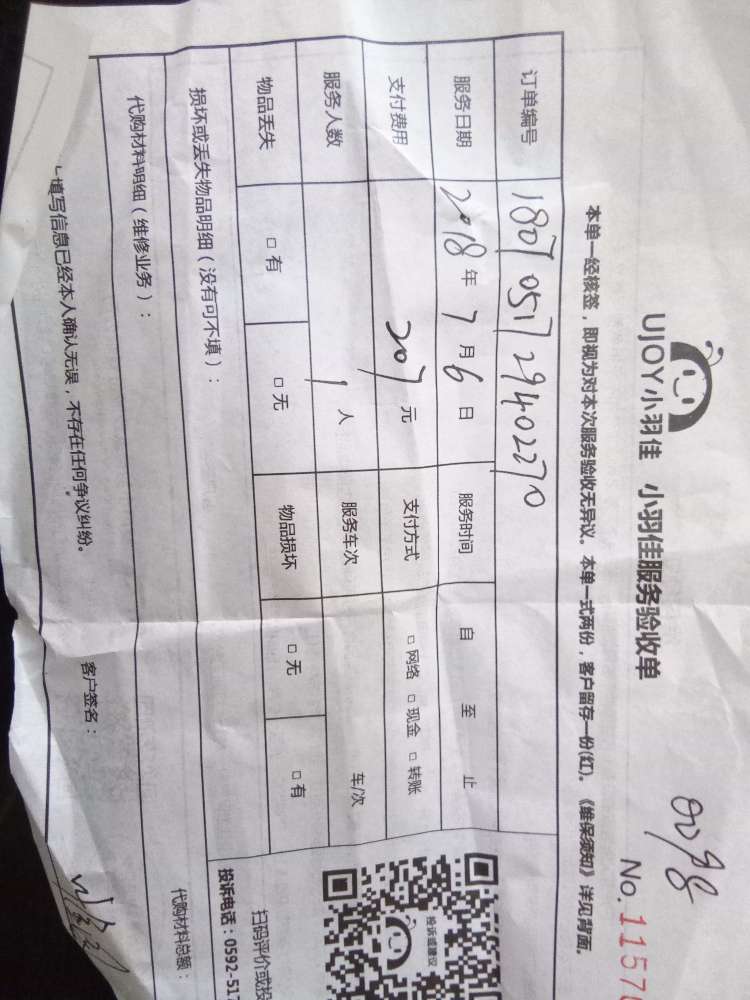 0098
UJOY小羽佳 小羽佳服务验收单
No. 1157
本单一经核签，即视为对本次服务验收无异议。本单一式两份，客户留存一份(红)。《维保须知》详见背面。
订单编号 180705172940227 0
服务日期 2018年7月6日 服务时间 自 至 止
支付费用 207元 支付方式 □网络 □现金 □转账
服务人数 1人 服务车次 车/次
物品丢失 □有 □无 物品损坏 □无 □有
损坏或丢失物品明细（没有可不填）：
代购材料明细（维修业务）： 代购材料总额：
填写信息已经本人确认无误，不存在任何争议纠纷。 客户签名：
投诉或建议
扫码评价或投
投诉电话：0592-517